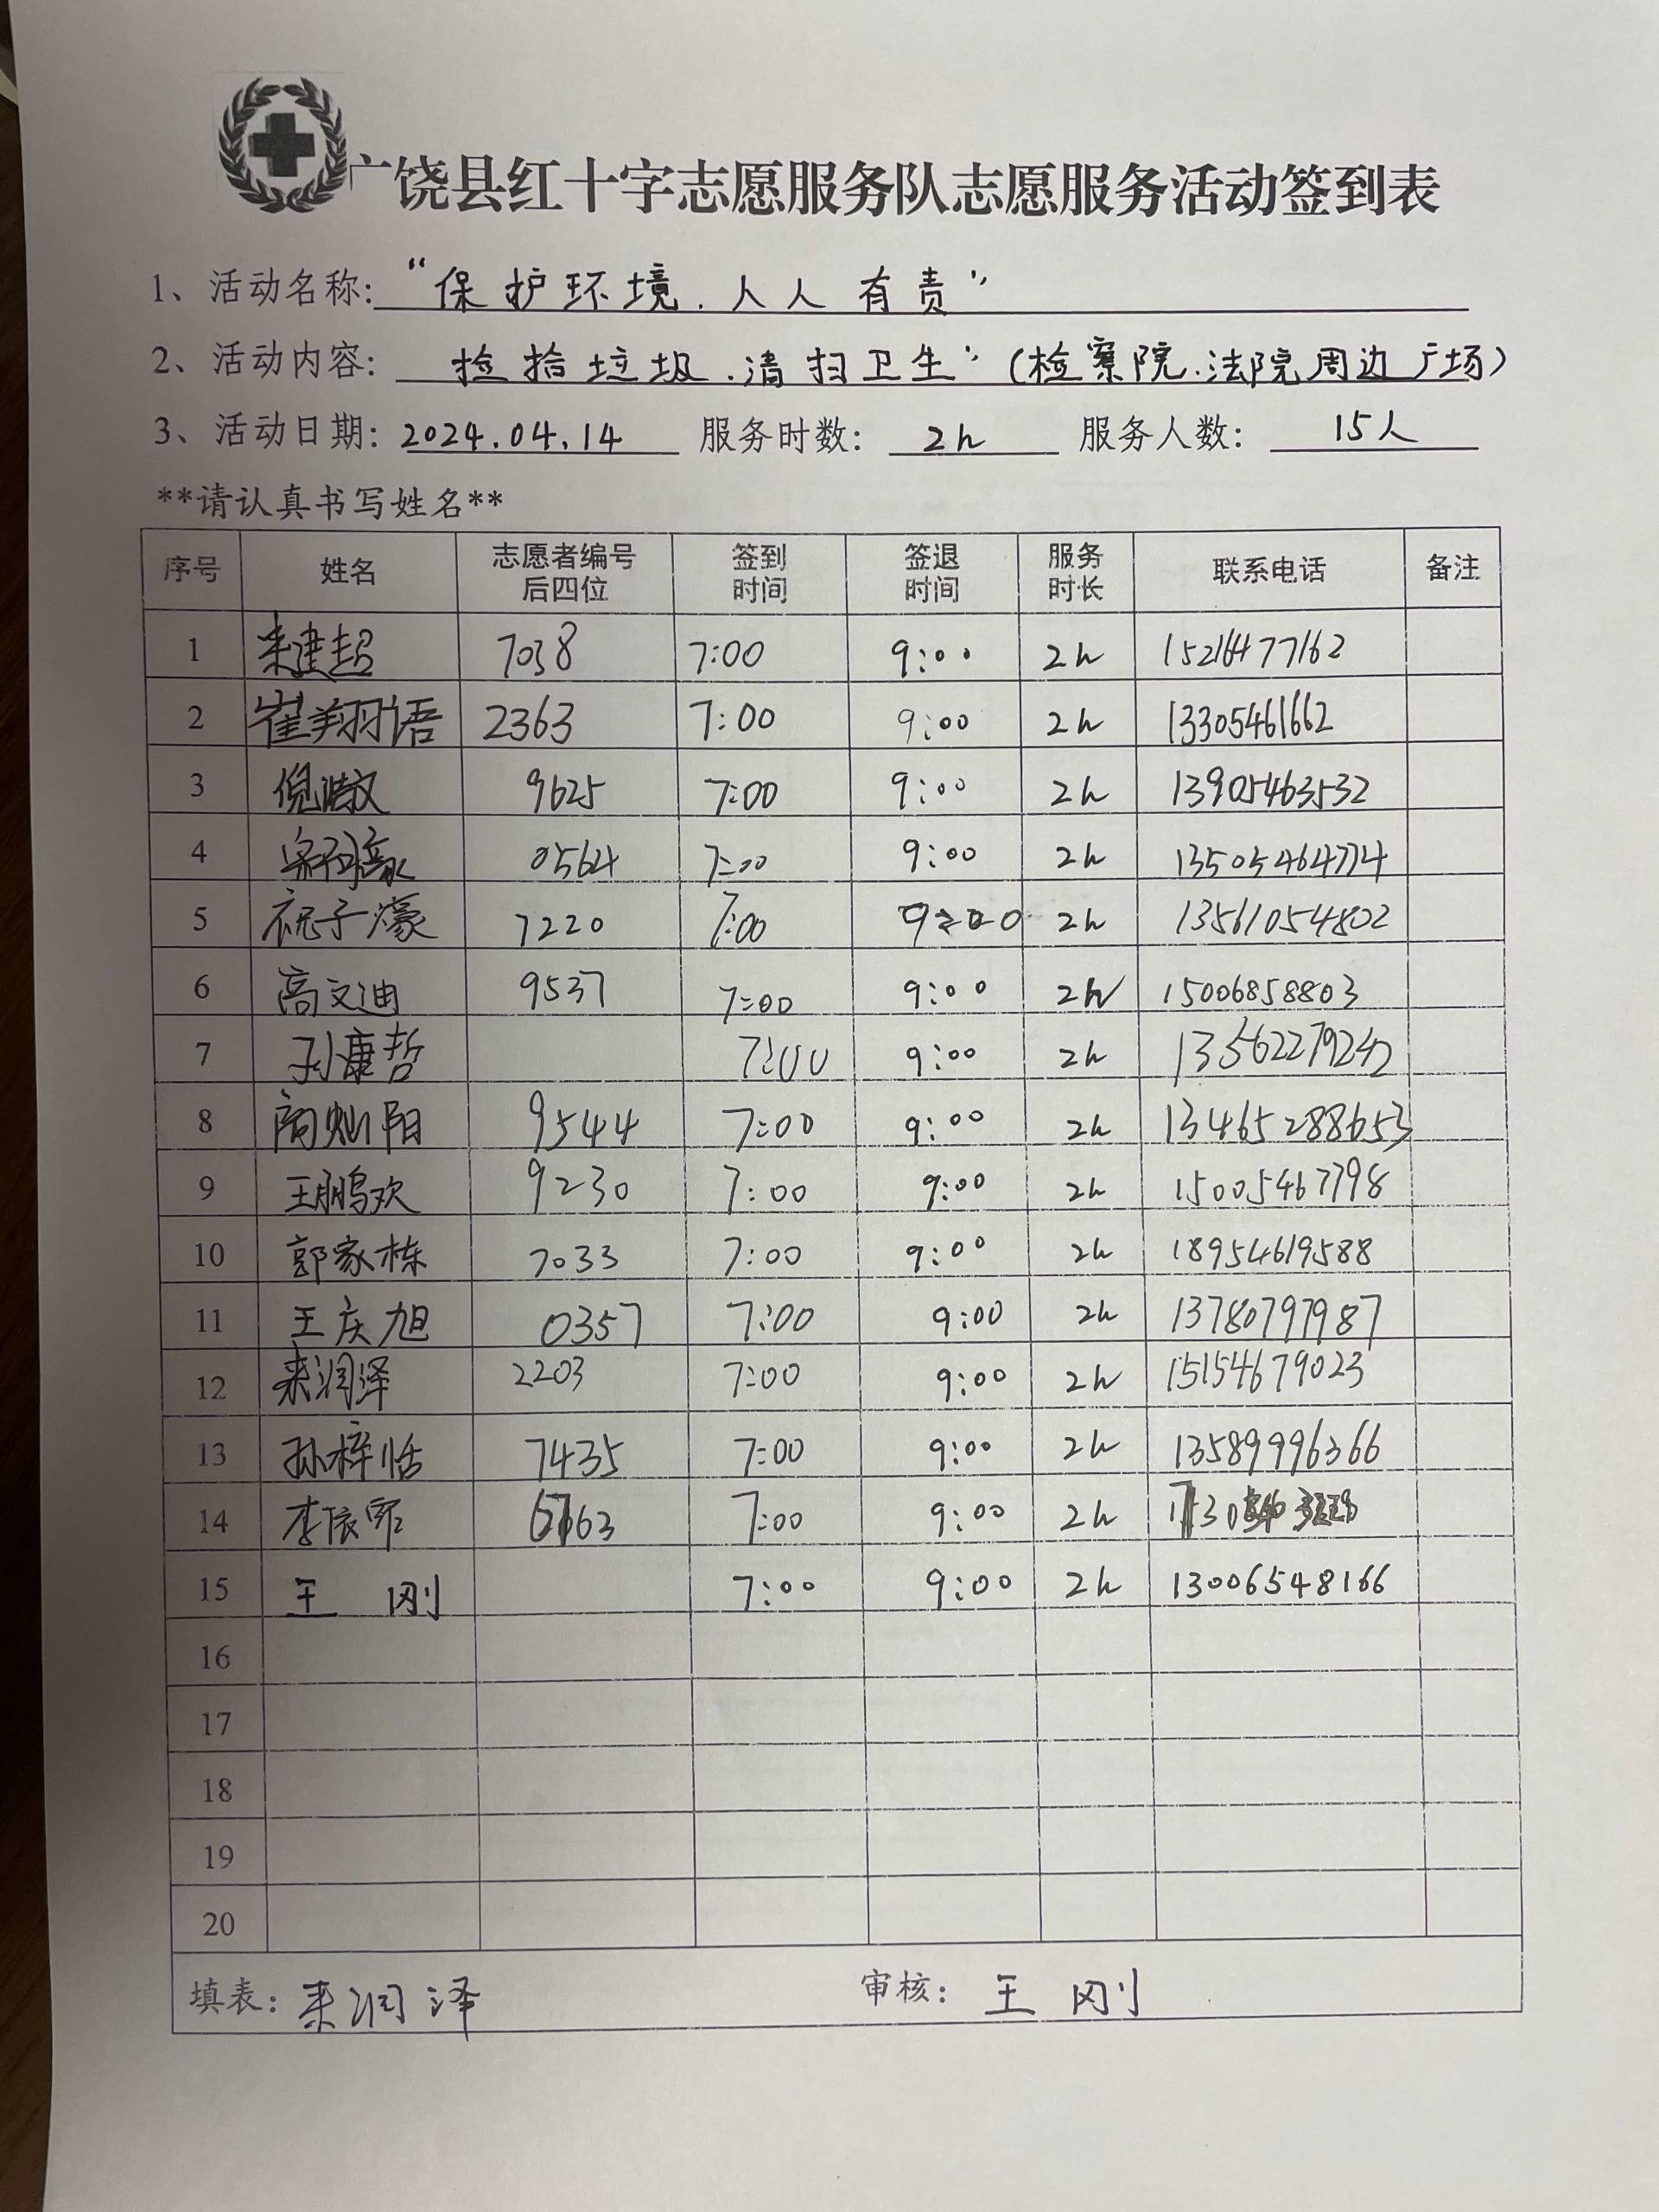 广饶县红十字志愿服务队志愿服务活动签到表
1、活动名称: “保护环境.人人有责”
2、活动内容: 捡拾垃圾.清扫卫生”(检察院.法院周边广场)
3、活动日期: 2024.04.14 服务时数: 2h 服务人数: 15人
**请认真书写姓名**
序号 姓名 志愿者编号后四位 签到时间 签退时间 服务时长 联系电话 备注
1 来建超 7038 7:00 9:00 2h
2 崔翔语 2363 7:00 9:00 2h 13305461662
3 9625 7:00 9:00 2h 13905463532
4 0564 7:00 9:00 2h 13505464774
5 祝子濠 7220 7:00 9:00 2h 13561054802
6 高文迪 9537 7:00 9:00 2h 15006858803
7 孙康哲 7:00 9:00 2h 13562279242
8 9544 7:00 9:00 2h 13465288653
9 王鹏欢 9230 7:00 9:00 2h 15005467798
10 郭家栋 7033 7:00 9:00 2h 18954619588
11 王庆旭 0357 7:00 9:00 2h 13780797987
12 来润泽 2203 7:00 9:00 2h 15154679023
13 孙梓恬 7435 7:00 9:00 2h 13589996366
14 7:00 9:00 2h
15 王刚 7:00 9:00 2h 13006548166
16
17
18
19
20
填表: 来润泽 审核: 王刚